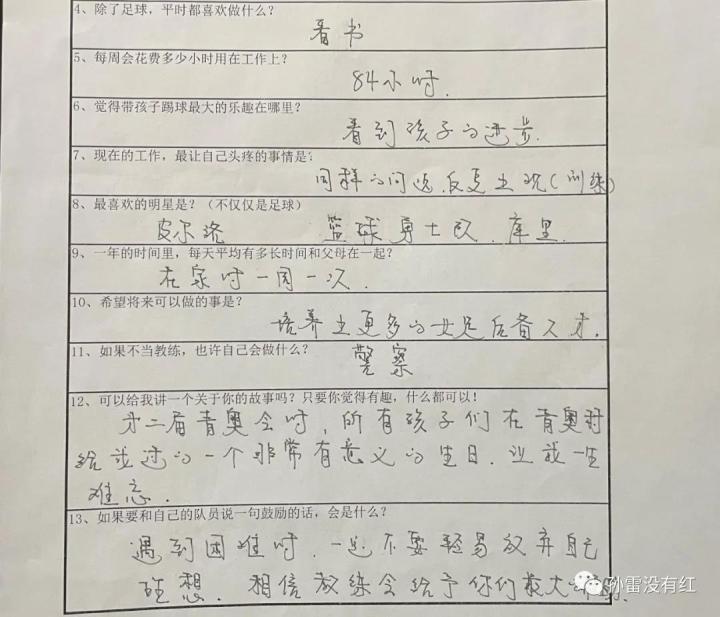 4、除了足球，平时都喜欢做什么？
看书
5、每周会花费多少小时用在工作上？
84小时.
6、觉得带孩子踢球最大的乐趣在哪里？
看到孩子的进步.
7、现在的工作，最让自己头疼的事情是？
同样的问题.反复出现(训练)
8、最喜欢的明星是？（不仅仅是足球）
皮尔洛 篮球勇士队.库里.
9、一年的时间里，每天平均有多长时间和父母在一起？
在家时一周一次.
10、希望将来可以做的事是？
培养出更多的女足后备人才.
11、如果不当教练，也许自己会做什么？ 警察
12、可以给我讲一个关于你的故事吗？只要你觉得有趣，什么都可以！
第二届青奥会时，所有孩子们在青奥村
给我过的一个非常有意义的生日.让我一生
难忘.
13、如果要和自己的队员说一句鼓励的话，会是什么？
遇到困难时.一定不要轻易放弃自己
理想.相信教练会给予你们最大
孙雷没有红